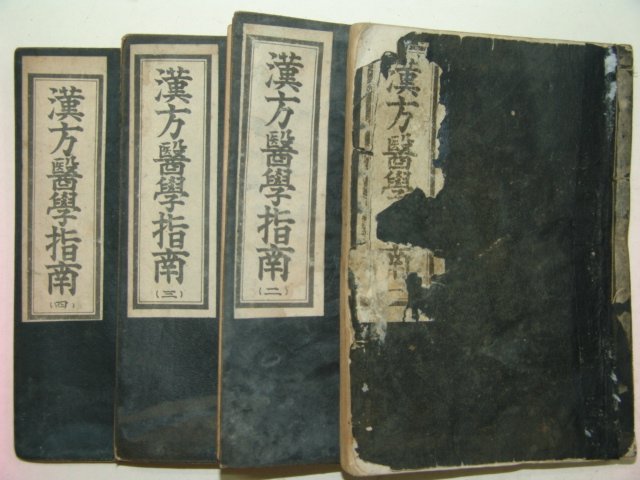 漢方醫學
南
漢方醫學指南
(二)
漢方醫學指南
(三)
漢方醫學指南
(四)